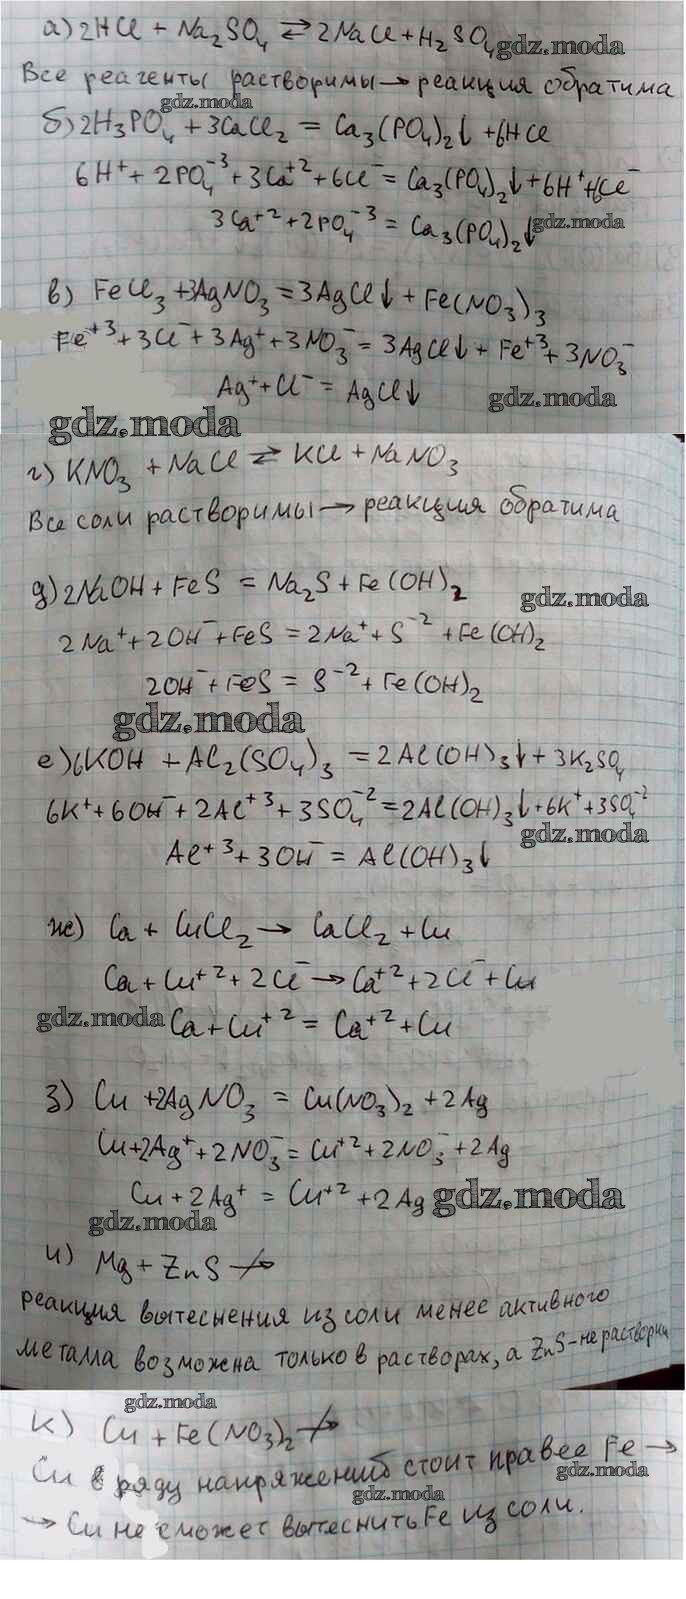 а) 2HCl + Na₂SO₄ ⇄ 2NaCl + H₂SO₄ gdz.moda
Все реагенты растворимы → реакция обратима
gdz.moda
б) 2H₃PO₄ + 3CaCl₂ = Ca₃(PO₄)₂↓ + 6HCl
6H⁺ + 2PO₄⁻³ + 3Ca⁺² + 6Cl⁻ = Ca₃(PO₄)₂↓ + 6H⁺ + 6Cl⁻
3Ca⁺² + 2PO₄⁻³ = Ca₃(PO₄)₂↓ gdz.moda
в) FeCl₃ + 3AgNO₃ = 3AgCl↓ + Fe(NO₃)₃
Fe⁺³ + 3Cl⁻ + 3Ag⁺ + 3NO₃⁻ = 3AgCl↓ + Fe⁺³ + 3NO₃⁻
Ag⁺ + Cl⁻ = AgCl↓ gdz.moda
gdz.moda
г) KNO₃ + NaCl ⇄ KCl + NaNO₃
Все соли растворимы → реакция обратима
д) 2NaOH + FeS = Na₂S + Fe(OH)₂ gdz.moda
2Na⁺ + 2OH⁻ + FeS = 2Na⁺ + S⁻² + Fe(OH)₂
2OH⁻ + FeS = S⁻² + Fe(OH)₂
gdz.moda
е) 6KOH + Al₂(SO₄)₃ = 2Al(OH)₃↓ + 3K₂SO₄
6K⁺ + 6OH⁻ + 2Al⁺³ + 3SO₄⁻² = 2Al(OH)₃↓ + 6K⁺ + 3SO₄⁻²
gdz.moda
Al⁺³ + 3OH⁻ = Al(OH)₃↓
ж) Ca + CuCl₂ → CaCl₂ + Cu
Ca + Cu⁺² + 2Cl⁻ → Ca⁺² + 2Cl⁻ + Cu
gdz.moda Ca + Cu⁺² = Ca⁺² + Cu
з) Cu + 2AgNO₃ = Cu(NO₃)₂ + 2Ag
Cu + 2Ag⁺ + 2NO₃⁻ = Cu⁺² + 2NO₃⁻ + 2Ag
Cu + 2Ag⁺ = Cu⁺² + 2Ag gdz.moda
gdz.moda
и) Mg + ZnS ↛
реакция вытеснения из соли менее активного
металла возможна только в растворах, а ZnS - не раствори
gdz.moda
к) Cu + Fe(NO₃)₂ ↛
Cu в ряду напряжений стоит правее Fe →
gdz.moda
gdz.moda
→ Cu не сможет вытеснить Fe из соли.